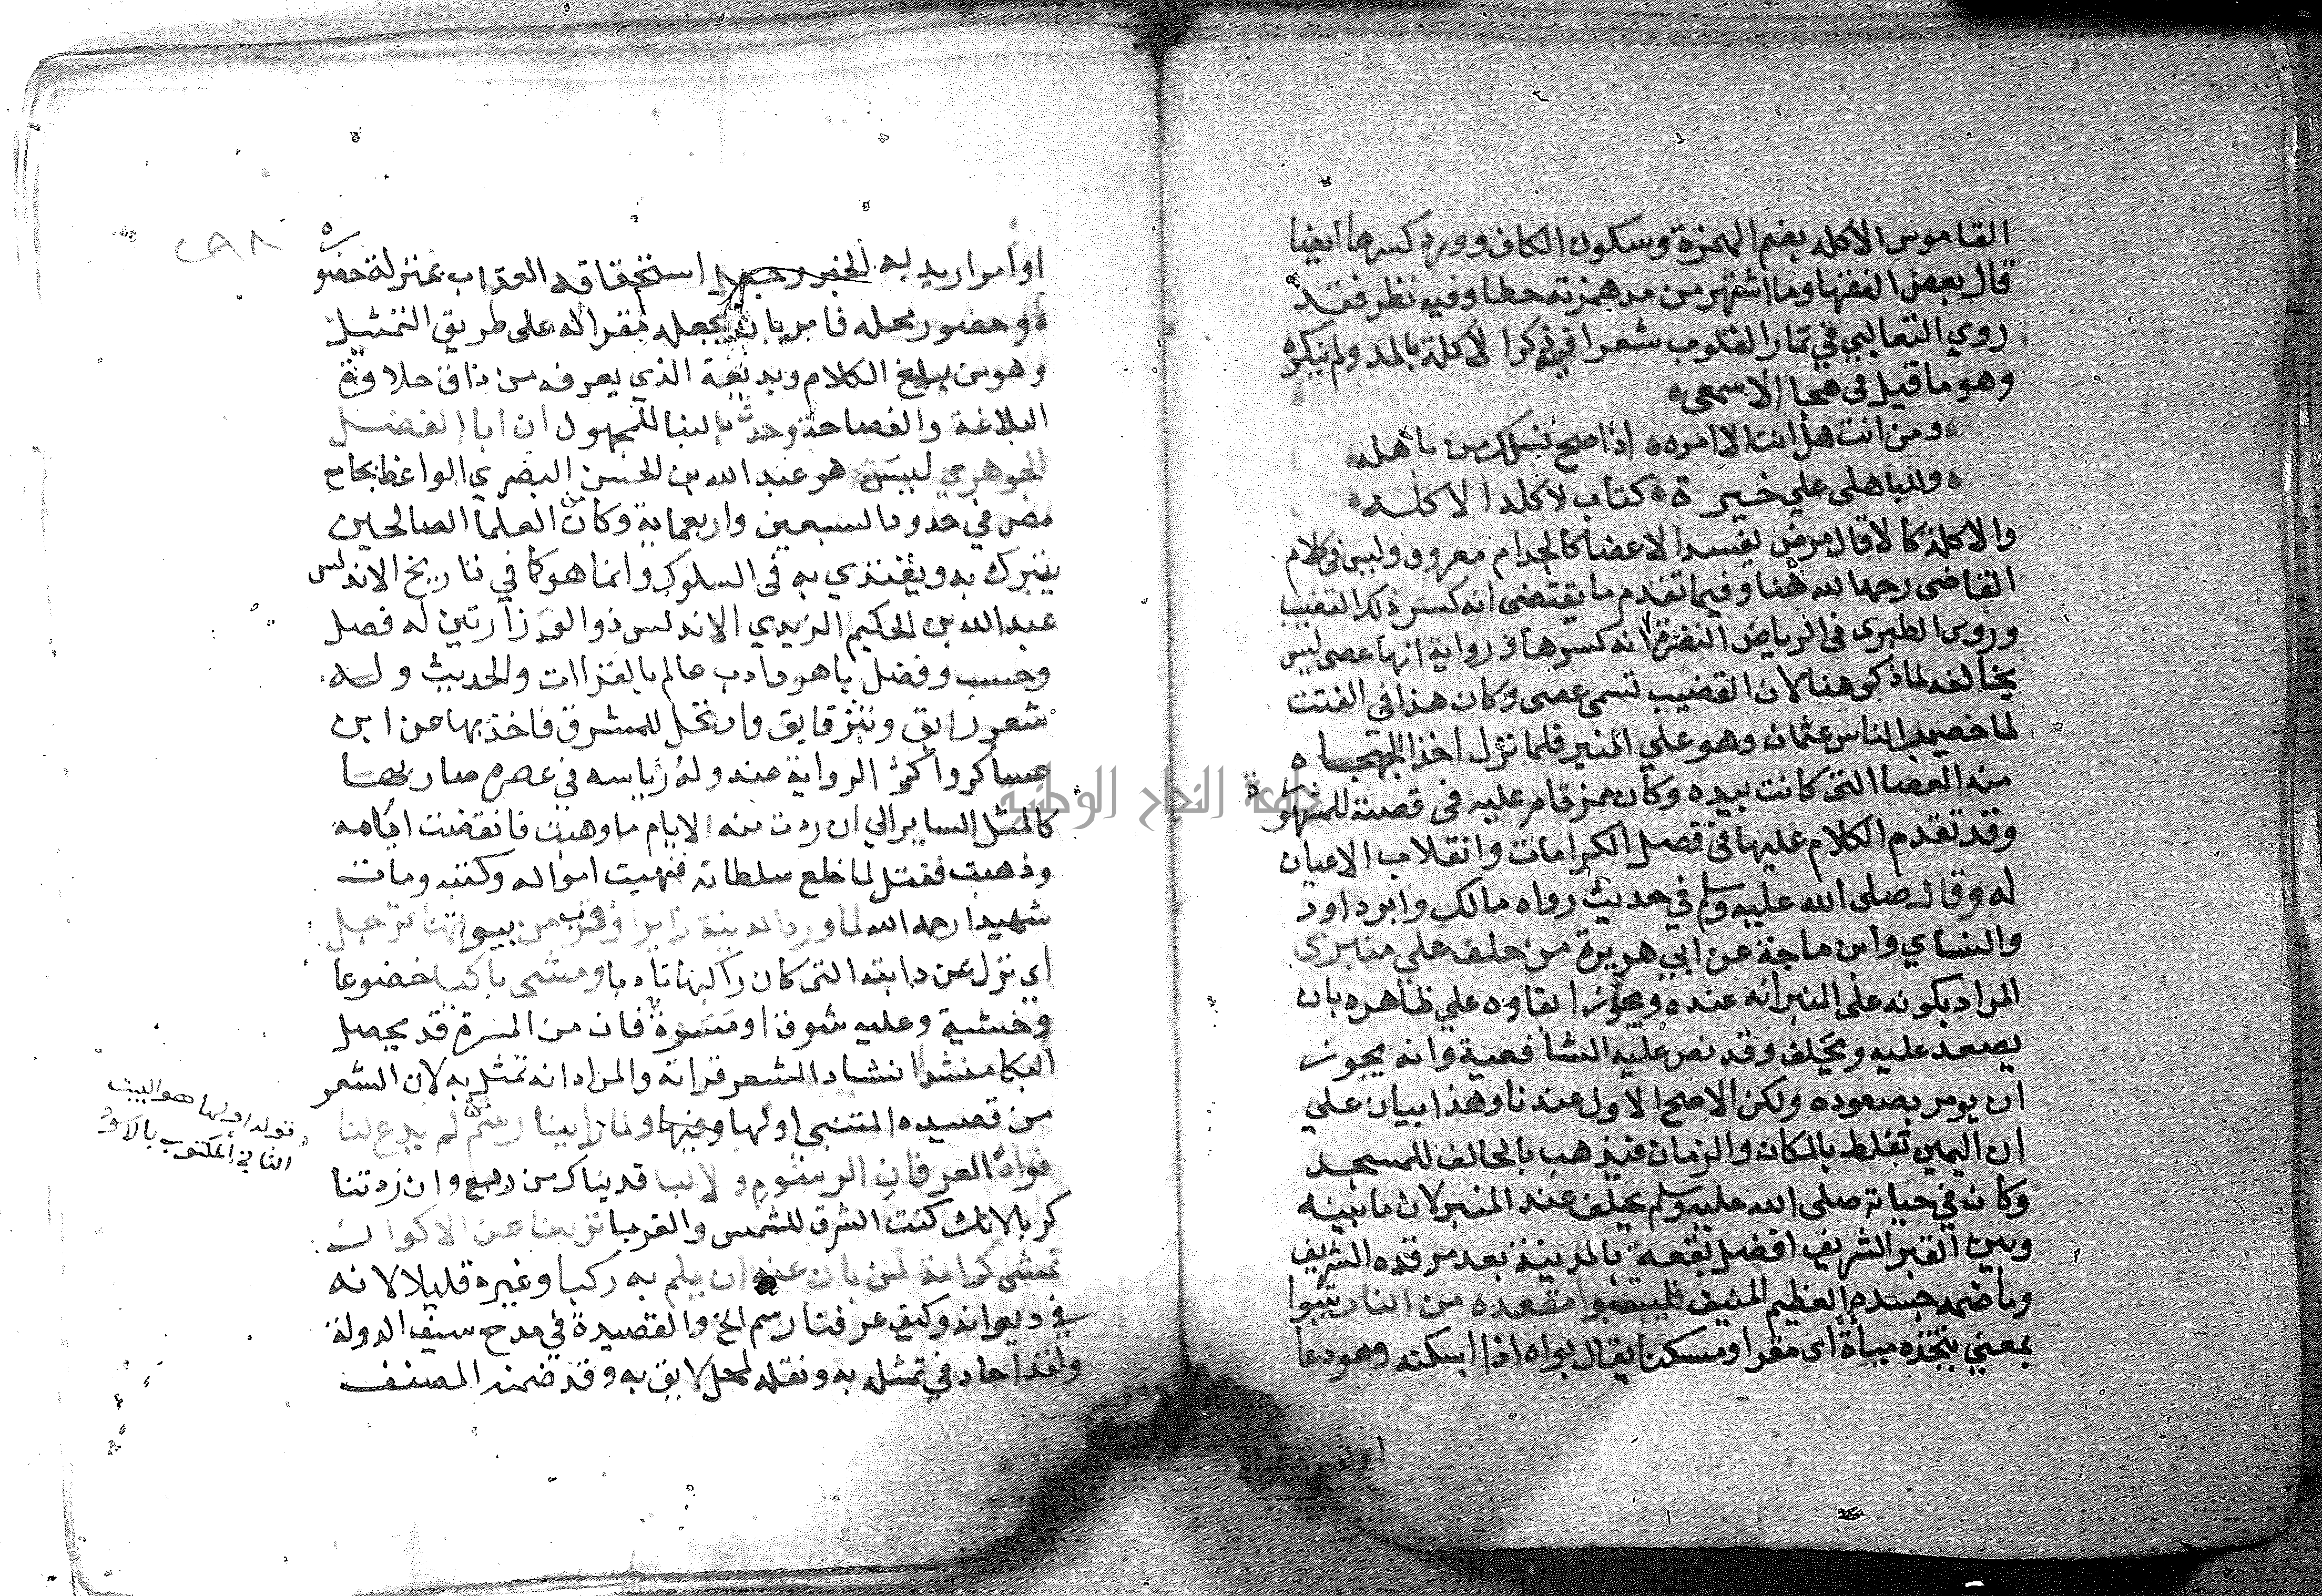 القاموس الاكله بضم الهمزة وسكون الكاف وورد كسرها ايضا
قال بعض الفقها وما اشتهر من مد همزته خطا وفيه نظر فقد
روي الثعالبي في ثمار القلوب شعرا فيه ذكرا لاكلة بالمد ولم ينكره
وهو ما قيل في هجا الاسمعي
ومن انت هل انت الا امره اذا صح نسلك من باهله
وللباهلي علي خبزة كتاب لاكله الاكله
والاكلة كالاقال مرض يفسد الاعضا كالجدام معروف وليس في كلام
القاضي رحمه الله هنا وفيما تقدم ما يقتضي انه كسر ذلك القضيب
وروي الطبري في الرياض النضرة انه كسرها ورواية انها عصى ليس
يخالف لما ذكر هنا لان القضيب تسمى عصى وكان هذا في الفتنت
لما خصب الناس عثمان وهو علي المنبر فلما نزل اخذ الجهجاه
منه العصا التي كانت بيده وكان ممن قام عليه في قصته المشهورة
وقد تقدم الكلام عليها في فصل الكرامات وانقلاب الاعيان
له وقال صلى الله عليه وسلم في حديث رواه مالك وابو داود
والنساي وابن ماجة عن ابي هريرة من حلف علي منبري
المراد بكونه على المنبر انه عنده ويجوز ابقاوه علي ظاهره بان
يصعد عليه ويحلف وقد نص عليه الشافعية وانه يجوز
ان يومر بصعوده ولكن الاصح الاول عندنا وهذا بيان علي
ان اليمين تغلط بالمكان والزمان فيذهب بالحالف للمسجد
وكان في حياته صلى الله عليه وسلم يحلف عند المنبر لان ما بينه
وبين القبر الشريف افضل بقعة بالمدينة بعد مرقده الشريف
وما ضمه جسده العظيم المنيف فليتبوا مقعده من النار يتبوا
بمعني يتخذه مباة اى مقرا ومسكنا يقال بواه اذا اسكنه وهو دعا
اوامر
٢٩٨
اوامر اريد به الخبر وجعل استحقاقه العذاب بمنزلة حضوره
وحضور محله فامر بان يجعله مقرا له على طريق التمثيل
وهو من بليغ الكلام وبديعه الذي يعرفه من ذاق حلاوة
البلاغة والفصاحة وحدث بالبنا للمجهول ان ابا الفضل
الجوهري ليس هو عبد الله بن الحسن البصري الواعظ بجامع
مصر في حدود السبعين واربعماية وكان من العلما الصالحين
يتبرك به ويقتدي به في السلوك وانما هو كما في تاريخ الاندلس
عبد الله بن الحكيم الزيدي الاندلس ذو الوزارتين له فصل
وحسب وفضل باهر وادب عالم بالقراات والحديث وله
شعر رايق ونثر فايق وارتحل للمشرق فاخذ بها عن ابن
عساكر واكثر الرواية عنه وله رياسه في عصره صار بها
كالمثل الساير الي ان ردت منه الايام ما وهبت فانقضت ايامه
وذهبت فقتل لما خلع سلطانه فنهبت امواله وكتبه ومات
شهيدا رحمه الله لما ورد المدينة زايرا وقرب من بيوتها ترجل
اي نزل عن دابته التي كان راكبها تادبا ومشى باكيا خضوعا
وخشية وعليه شوق او مسرة فان من المسرة قد يحصل
البكا منشدا انشاد الشعر قراته والمراد انه تمثل به لان الشعر
من قصيده المتنبي اولها وفيها ولما راينا رسم من لم يدع لنا
فوادا لعرفان الرسوم ولا لبا فديناك من ربع وان زدتنا
كربا لانك كنت الشرق للشمس والغربا نزلنا عن الاكوار
نمشي كرامة لمن بان عنه ان يلم به ركبا وغيره قليلا لانه
في ديوانه وكيف عرفنا رسم الخ والقصيدة في مدح سيف الدولة
ولقد اجاد في تمثله به ونقله لمحل لايق به وقد ضمنه المصنف
قوله اولها هو البيت
الثاني المكتوب بالاحمر
جامعة النجاح الوطنية